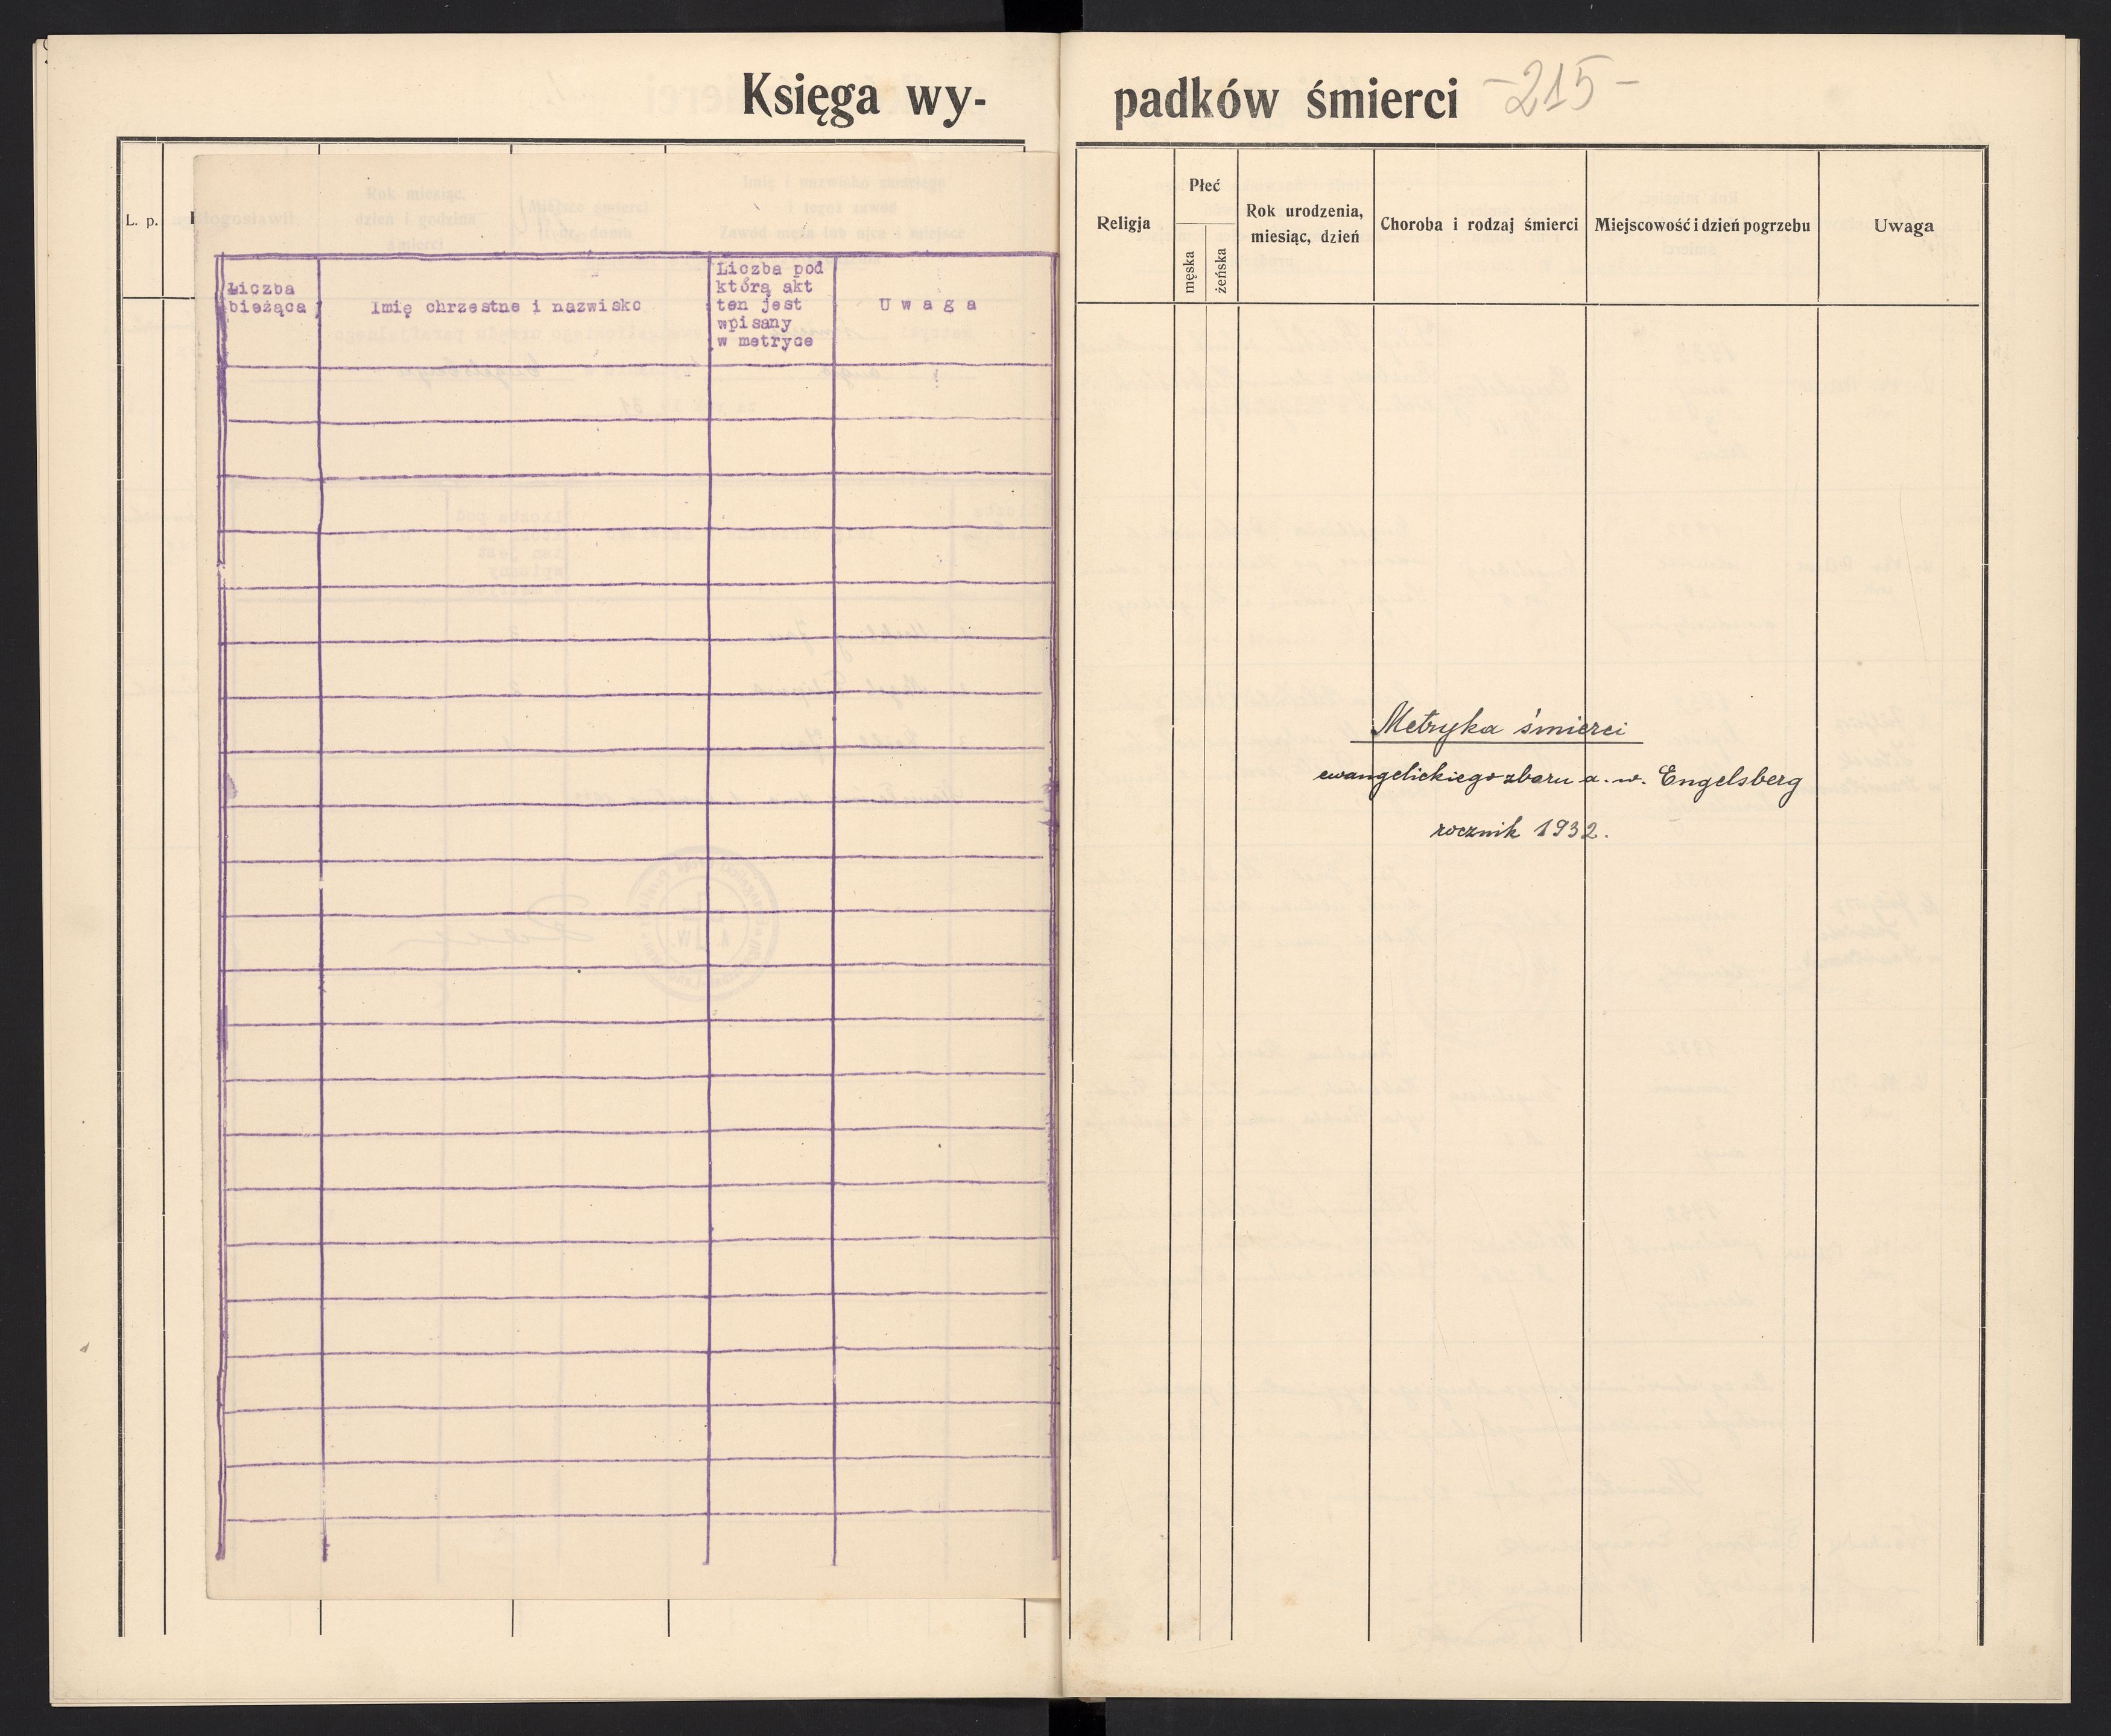 Księga wy-
padków śmierci -215-
L. p.
Liczba bieżąca
Imię chrzestne i nazwisko
Liczba pod
którą akt
ten jest
wpisany
w metryce
Uwaga
Religja
Płeć
męska
żeńska
Rok urodzenia,
miesiąc, dzień
Choroba i rodzaj śmierci
Miejscowość i dzień pogrzebu
Uwaga
Metryka śmierci
ewangelickiego zboru a. w. Engelsberg
rocznik 1932.